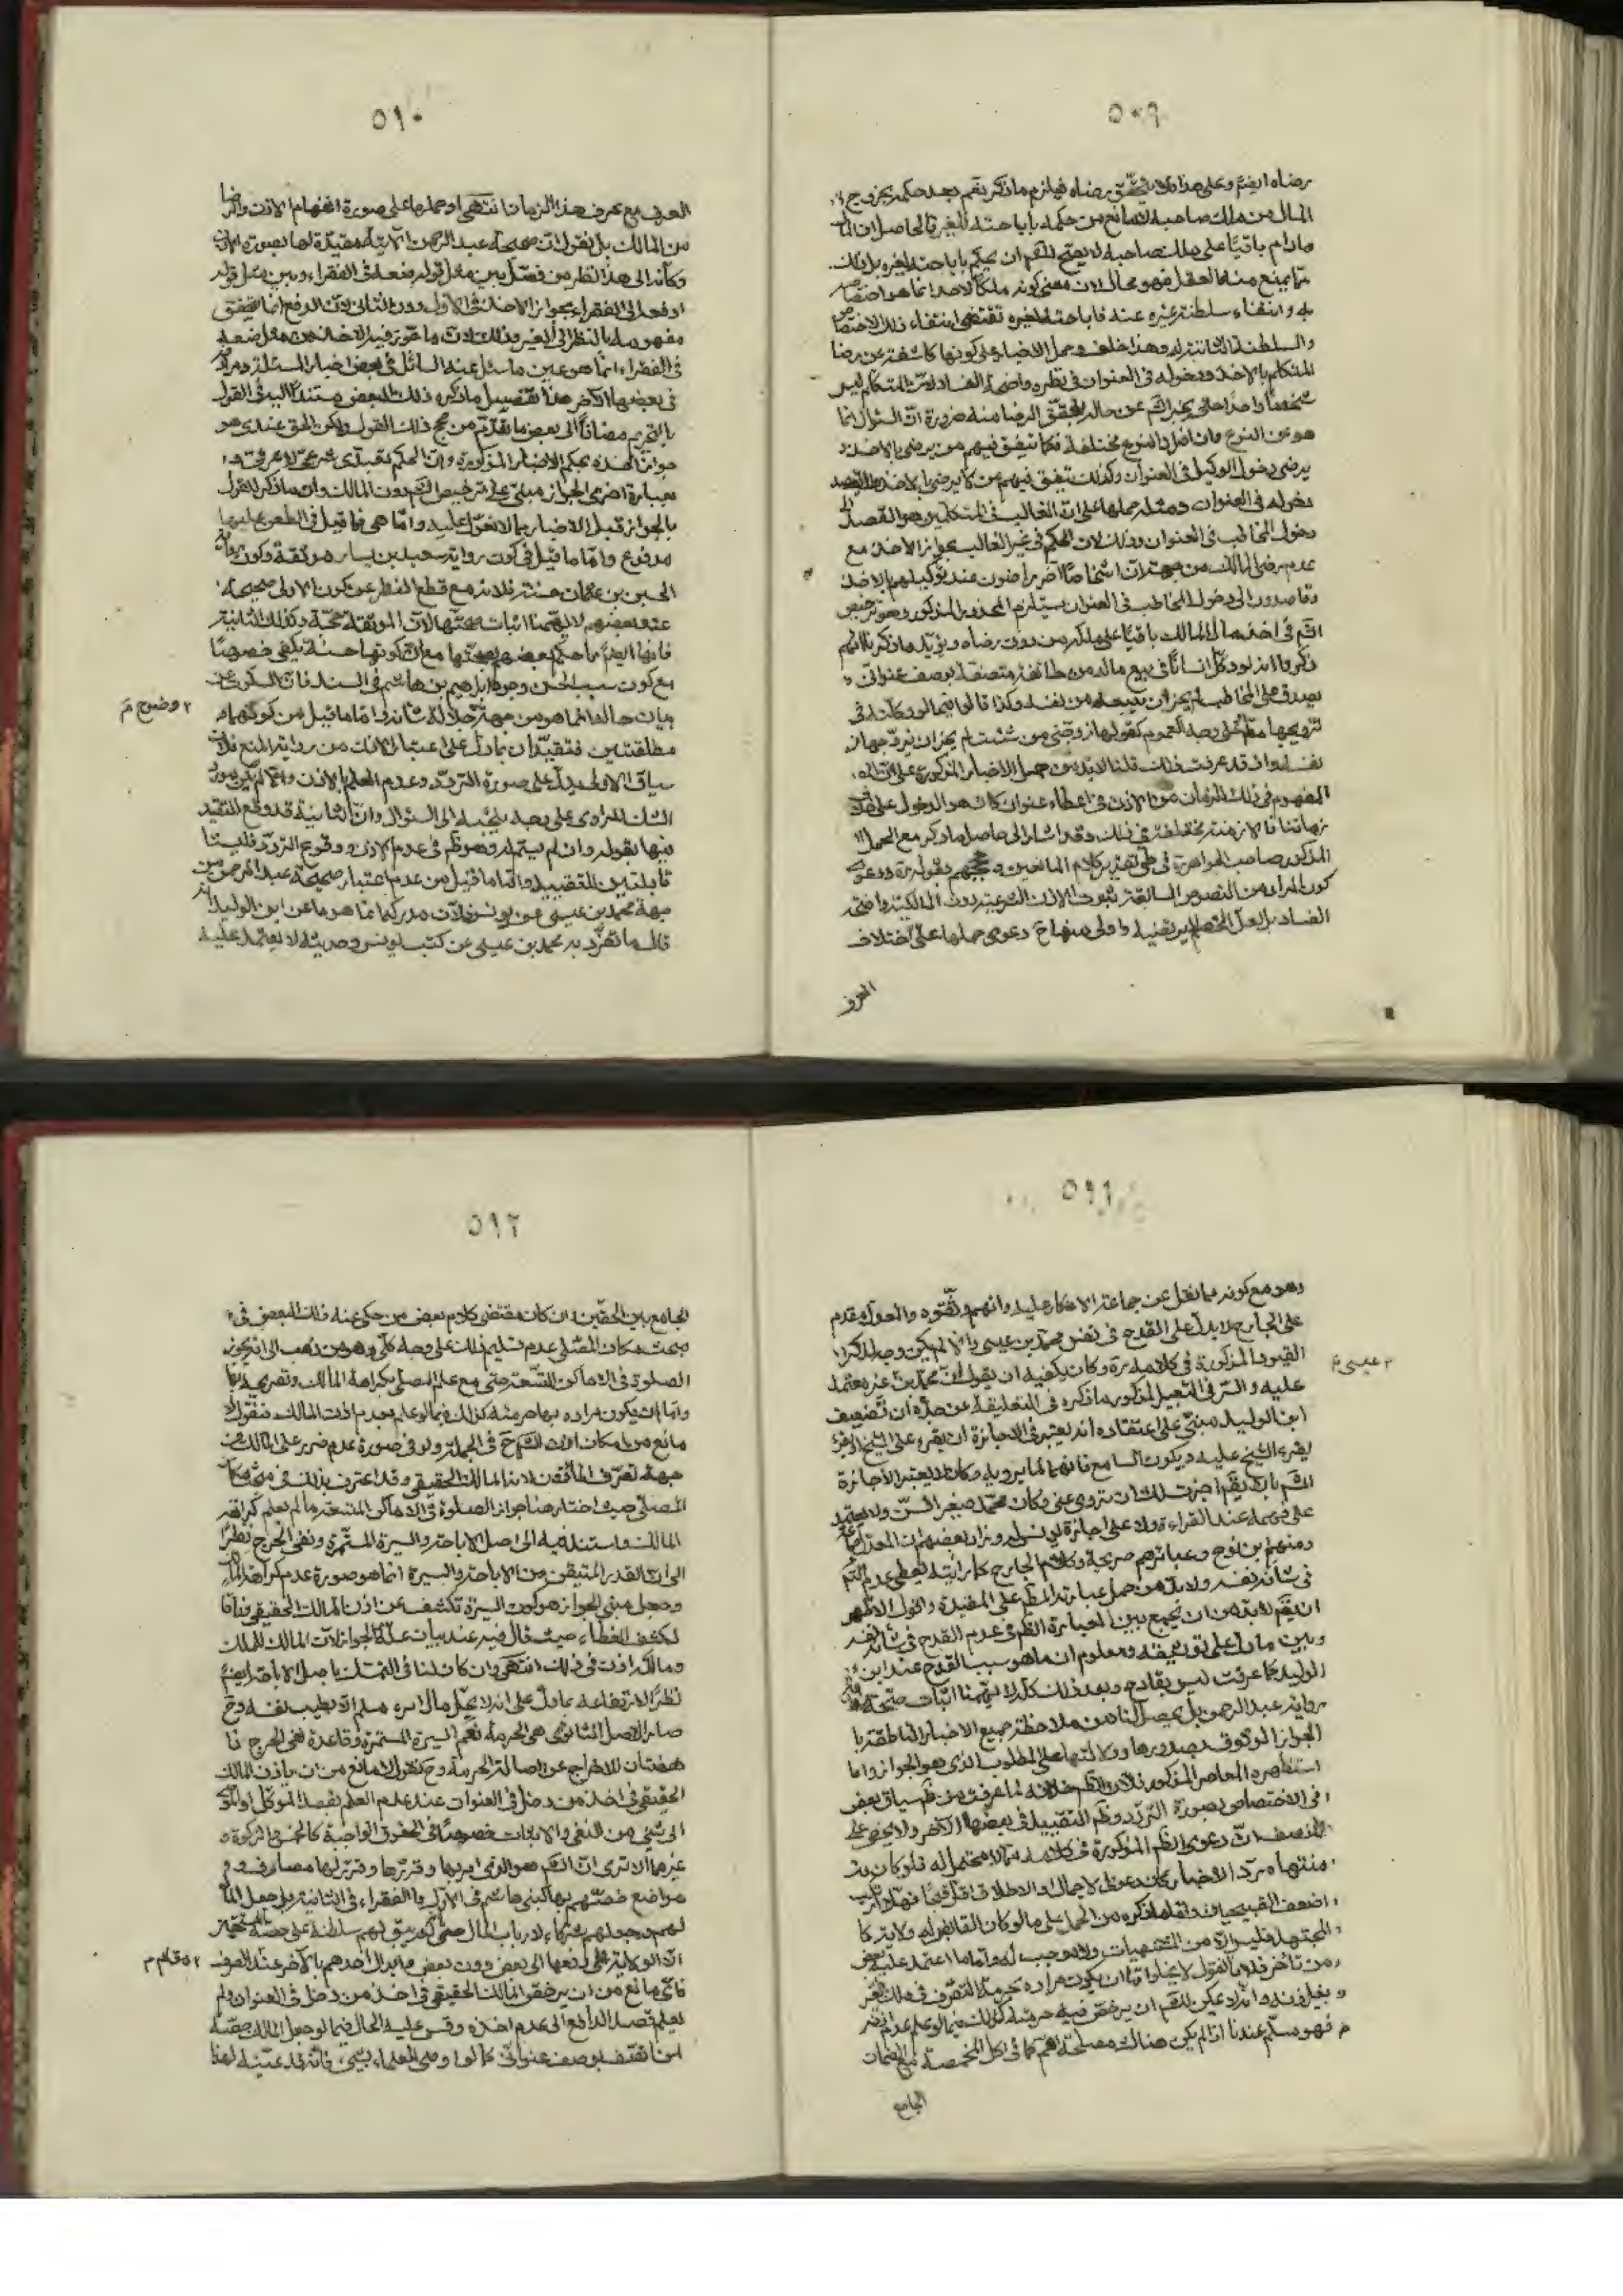 ٥٠٩
رضاه ايضا وعلى هذا فلا يتحقق رضاه فيلزم ما ذكر نعم بعد حكمه بخروج
المال من ملك صاحبه لا مانع من حكمه باباحته للغير فالحاصل ان المال
مادام باقيا على ملك صاحبه لا يصح للشم ان يحكم باباحته لغيره بل ذلك
مما يمنع منه العقل فهو محال لان معنى كونه ملكا لاحد انما هو اختصاصه
به وانتفاء سلطنة غيره عنه فاباحته لغيره تقتضى انتفاء ذلك الاختصاص
والسلطنة الثابتة له وهذا خلف وحمل الاخبار على كونها كاشفة عن رضا
المتكلم بالاخذ ودخوله في العنوان في نظره واضح الفساد لان المتكلم ليس
شخصا واحدا حتى يخبر الشم عن حاله بتحقق الرضا منه ضرورة ان السؤال انما
هو عن النوع وان افراد النوع مختلفة فكما يتفق فيهم من يرضى بالاخذ و
يرضى بدخول الوكيل في العنوان وكذلك يتفق فيهم من لا يرضى بالاخذ ولا يقصد
دخوله في العنوان ومثله حملها على ان الغالب في المتكلمين هو القصد الى
دخول المخاطب في العنوان وذلك لان الحكم في غير الغالب بجواز الاخذ مع
عدم رضى المالك من جهة ان اشخاصا آخر راضون عند توكيلهم بالاخذ
وقاصدون الى دخول المخاطب في العنوان يستلزم المحذور المذكور وهو ترخيص
الشم في اخذ مال المالك باقيا على ملكه من دون رضاه ويؤيد ما ذكرنا انهم
ذكروا انه لو وكل انسانا في بيع ماله من طائفة متصفة بوصف عنوانى
يصدق على المخاطب لم يجز ان يبيعه من نفسه وكذا قالوا فيما لو وكلته في
تزويجها مط على وجه العموم كقولها زوجنى من شئت لم يجز ان يزوجها من
نفسه واذ قد عرفت ذلك قلنا لابد من حمل الاخبار المذكورة على ان
المفهوم في ذلك الزمان من الاذن في اعطاء عنوان كان هو الدخول على خلاف
زماننا فالازمنة مختلفة في ذلك وقد اشار الى حاصل ما ذكر مع الحمل
المذكور صاحب الجواهر ره في طى تقرير كلام المانعين وحججهم بقوله ره ودعوى
كون المراد من النصوص السابقة ثبوت الاذن الشرعية دون المالكية واضحة
الفساد بل لعل الخصم لا يرتضيه واولى منها ح دعوى حملها على اختلاف
العرف
٥١٠
العرف مع عرف هذا الزمان انتهى او حملها على صورة انفهام الاذن والرضا
من المالك بل نقول ان صحيحة عبد الرحمن الآتية مقيدة لها بصورة الاذن
وكأنه الى هذا نظر من فصل بين مثل قوله ضعه في الفقراء وبين مثل قوله
ادفعه الى الفقراء بجواز الاخذ في الاول دون الثانى لان الدفع انما يتحقق
مفهومه بالنظر الى الغير وذلك لان ما جوز فيه الاخذ من مثل ضعه
في الفقراء انما هو عين ما سئل عنه السائل في بعض اخبار المسئلة ومراد
في بعضها الآخر هذا تفصيل ما ذكره ذلك البعض مستندا اليه في القول
بالتحريم مضافا الى بعض ما تقدم من حجج ذلك القول ولكن الحق عندى هو
جواز الاخذ بحكم الاخبار المذكورة وان الحكم تعبدى شرعى لا عرفى و
بعبارة اخرى الجواز مبنى على ترخيص الشم دون المالك وان ما ذكر للقول
بالجواز قبل الاخبار مما لا نعول عليه واما هى فما قيل في الطعن عليها
مدفوع واما ما قيل في كون رواية سعيد بن يسار موثقة وكون رواية
الحسين بن عثمان حسنة فلانه مع قطع النظر عن كون الاولى صحيحة
عند بعضهم لا يهمنا اثبات صحتها لان الموثقة حجة وكذلك الثانية
فانها ايضا ما حكم بعضهم بصحتها مع ان كونها حسنة يكفى خصوصا
مع كون سبب الحسن وجود ابراهيم بن هاشم في السند فان السكوت عن
بيان حاله انما هو من جهة جلالة شأنه واما ما قيل من كونهما
٢ وضوح م
مطلقتين فتقيدان بما دل على اعتبار الاذن من رواية المنع فلان
سياق الاولى يدل على صورة التردد وعدم العلم بالاذن والا لم يكن لسؤال
السائل الراوى على وجه يلجئه الى السؤال وان الثانية قد وقع التقييد
فيها بقوله وان لم يسم له وهو ظم في عدم الاذن ووقوع التردد فليستا
قابلتين للتقييد واما ما قيل من عدم اعتبار صحيحة عبد الرحمن من
جهة محمد بن عيسى عن يونس فلان مدركه انما هو ما عن ابن الوليد انه
قال ما تفرد به محمد بن عيسى عن كتب يونس وحديثه لا يعتمد عليه
٥١١
وهو مع كونه مما نقل عن جماعة الانكار عليه وانهم وثقوه والمعدل مقدم
على الجارح لا يدل على القدح في نفس محمد بن عيسى والا لم يكن وجه لذكر
القيود المذكورة في كلامه ره وكان يكفيه ان يقول ان محمد بن غير معتمد
٢ عيسى م
عليه والسر في التعبير المذكور ما ذكره في التعليقة عن جده ان تضعيف
ابن الوليد مبنى على اعتقاده انه يعتبر في الاجازة ان يقرء على الشيخ او
يقرء الشيخ عليه ويكون السامع فاهما لما يرويه وكان لا يعتبر الاجازة
الشم بان يقم اجزت لك ان تروى عنى وكان محمد صغير السن ولا يعتمد
على فهمه عند القراءة ولا على اجازة يونس له وزاد بعضهم ان المعدل
ومنهم بن نوح وعبائرهم صريحة وكلام الجارح كما رأيته
في شأنه نفسه ولابد من حمل عبارته المظم على المقيدة واقول الاظهر
ان يقم لابد من ان يجمع بين العبارة الظم في عدم القدح في شأنه نفسه
وبين ما دل على توثيقه ومعلوم ان ما هو سبب القدح عند ابن
الوليد كما عرفت ليس بقادح وبعد ذلك كله لا يهمنا اثبات صحة
رواية عبد الرحمن بل يحصل لنا من ملاحظة جميع الاخبار الناطقة با
الجواز الوثوق بصدورها ودلالتها على المطلوب الذى هو الجواز واما
استظهره المعاصر المذكور فلان الظم خلافه لما عرفت من ظم سياق بعض
في الاختصاص بصورة التردد وظم التقييد في بعضها الآخر ولا يخفى على
المنصف ان دعوى الظم المذكورة في كلامه مما لا محتمل له فلو كان
منتهاه مرد الاخبار كان دعوى الاجمال او الاطلاق اقل قبحا فهلا ارتكب
اضعف القبيحين ولقد ما ذكره من الحمل على ما لو كان القابض له ولاية كا
لمجتهد فليس الا من المشتهيات ولا موجب له واما ما اعتمد عليه بعض
من تأخر فلانا نقول لا يخلوا اما ان يكون مراده بحرمة التصرف في ملك الغير
وبغير اذنه وانه لا يمكن للشم ان يرخص فيه حرمته كذلك فيما لو علم عدم اذنه
فهو مسلم عندنا اذا لم يكن هناك مصلحة اهم كما في اكل المخمصة مع الضمان
الجامع
٥١٢
الجامع بين الحقين وان كان مقتضى كلام بعض من حكى عنه ذلك البعض في
مبحث مكان المصلى عدم تسليم ذلك على وجه كلى وهو من ذهب الى تجويز
الصلوة في الاماكن المتسعة حتى مع علم المصلى بكراهة المالك وتصريحه بها
واما ان يكون مراده بها حرمته كذلك فيما لو علم بعدم اذن المالك فنقول لا
مانع من امكان الاذن الشم ح في الجملة ولو في صورة عدم ضرر على المالك من
جهة تعرف المأذون لاذن المالك الحقيقى وقد اعترف بذلك في مبحث مكان
المصلى حيث اختار هنا جواز الصلوة في الاماكن المتسعة ما لم يعلم كراهة
المالك واستند فيه الى اصل الاباحة والسيرة المستمرة ونفى الحرج نظرا
الى ان القدر المتيقن من الاباحة والسيرة انما هو صورة عدم كراهة المالك
وجعل مبنى الجواز هو كون السيرة تكشف عن اذن المالك الحقيقى وفاقا
لكشف الغطاء حيث قال فيه عند بيان علة الجواز لان المالك للملك
ومالكه اذن في ذلك انتهى وان كان لنا في التمسك باصل الاباحة ايضا
نظر لارتفاعه بما دل على انه لا يحل مال امرء مسلم الا بطيب نفسه وح
صار الاصل الثانوى هى الحرمة نعم السيرة المستمرة وقاعدة نفى الحرج نا
هضتان للاخراج عن اصالة الحرمة وح نقول لا مانع من ان ياذن المالك
الحقيقى في اخذ من دخل في العنوان عند عدم العلم بقصد الموكل او
الى شئ من النفى والاثبات خصوصا في الحقوق الواجبة كالخمس والزكوة و
غيرها الا ترى ان الشم هو الذى امر بها وقررها وقرر لها مصارف و
مواضع خصهم بها كبنى هاشم في الاول والفقراء في الثانية بل جعل المال
لهم وجعلهم شركاء لارباب المال حتى انه لم يبق لهم سلطنة على حصة المستحقين
الا الولاية على دفعها الى بعض دون بعض وابدال احدهم بالآخر عند الصرف
فأى مانع من ان يرخص المالك الحقيقى في اخذ من دخل في العنوان ولم
يعلم قصد الدافع الى عدم اخذه وقس عليه الحال فيما لو جعل المالك حقه
لمن اتصف بوصف عنوانى كما لو اوصى للعلماء بشئ فانه قد عينه لهذا